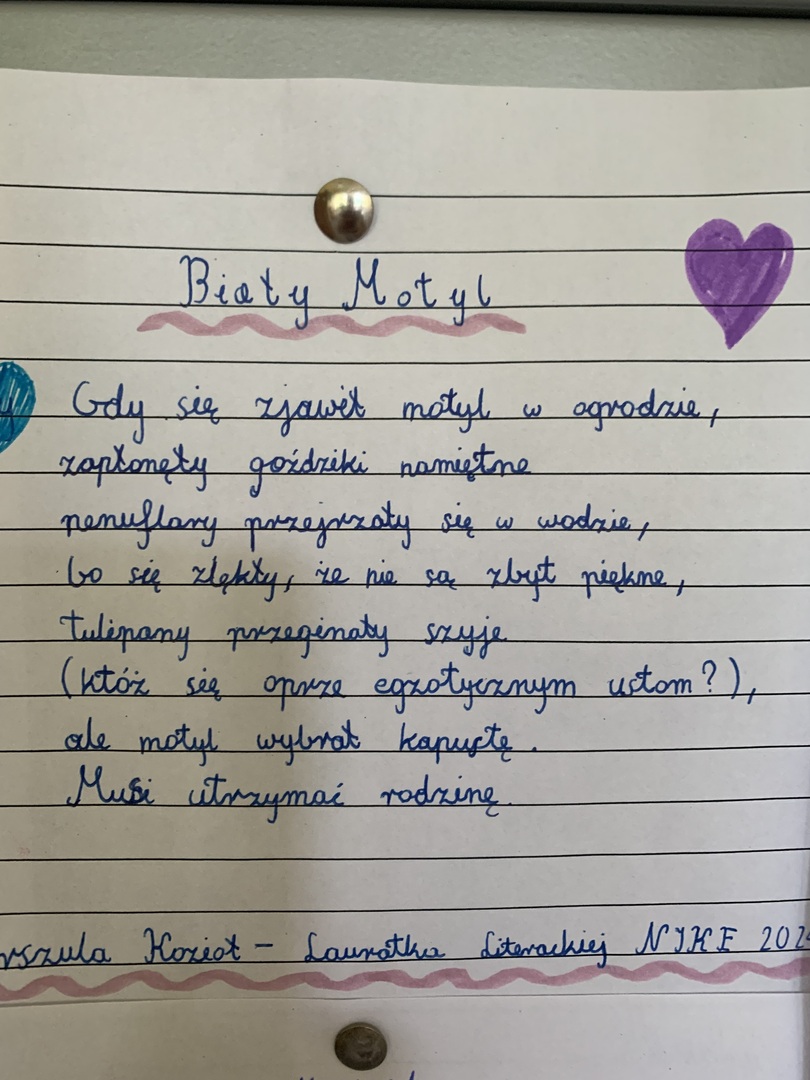 Biały Motyl
Gdy się zjawił motyl w ogrodzie,
zapłonęły goździki namiętne
nenuflary przejrzały się w wodzie,
bo się zlękły, że nie są zbyt piękne,
tulipany przeginały szyje
(któż się oprze egzotycznym ustom?),
ale motyl wybrał kapustę.
Musi utrzymać rodzinę.
rszula Kozioł - Lauratka Literackiej NIKE 202